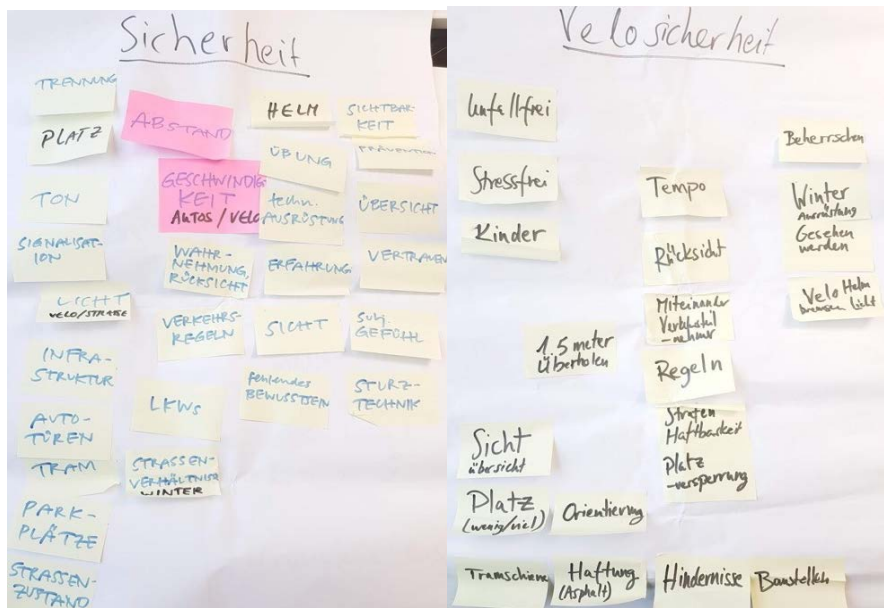 Sicherheit
TRENNUNG
PLATZ
TON
SIGNALISAT-
ION
LICHT
VELO/STRAßE
INFRA-
STRUKTUR
AUTO-
TÜREN
TRAM
PARK-
PLÄTZE
STRASSEN-
ZUSTAND
ABSTAND
GESCHWINDIG-
KEIT
AUTOS/VELO
WAHR-
NEHMUNG,
RÜCKSICHT
VERKEHRS-
REGELN
LKWs
STRASSEN-
VERHÄLTNISSE
WINTER
HELM
ÜBUNG
techn.
AUSRÜSTUNG
ERFAHRUNG
SICHT
fehlendes
BEWUSSTSEIN
SICHTBAR-
KEIT
PRÄVENTION
ÜBERSICHT
VERTRAUEN
subj.
GEFÜHL
STURZ-
TECHNIK
Velosicherheit
Unfallfrei
Stressfrei
Kinder
1.5 meter
Überholen
Sicht
übersicht
Platz
(wenig/viel)
Orientierung
Tramschiene
Haftung
(Asphalt)
Hindernisse
Baustellen
Tempo
Rücksicht
Miteinander
Regeln
Haftbarkeit
Platz
-versperrung
Beherrschen
Winter
Ausrüstung
Gesehen
werden
Velo Helm
bremsen Licht